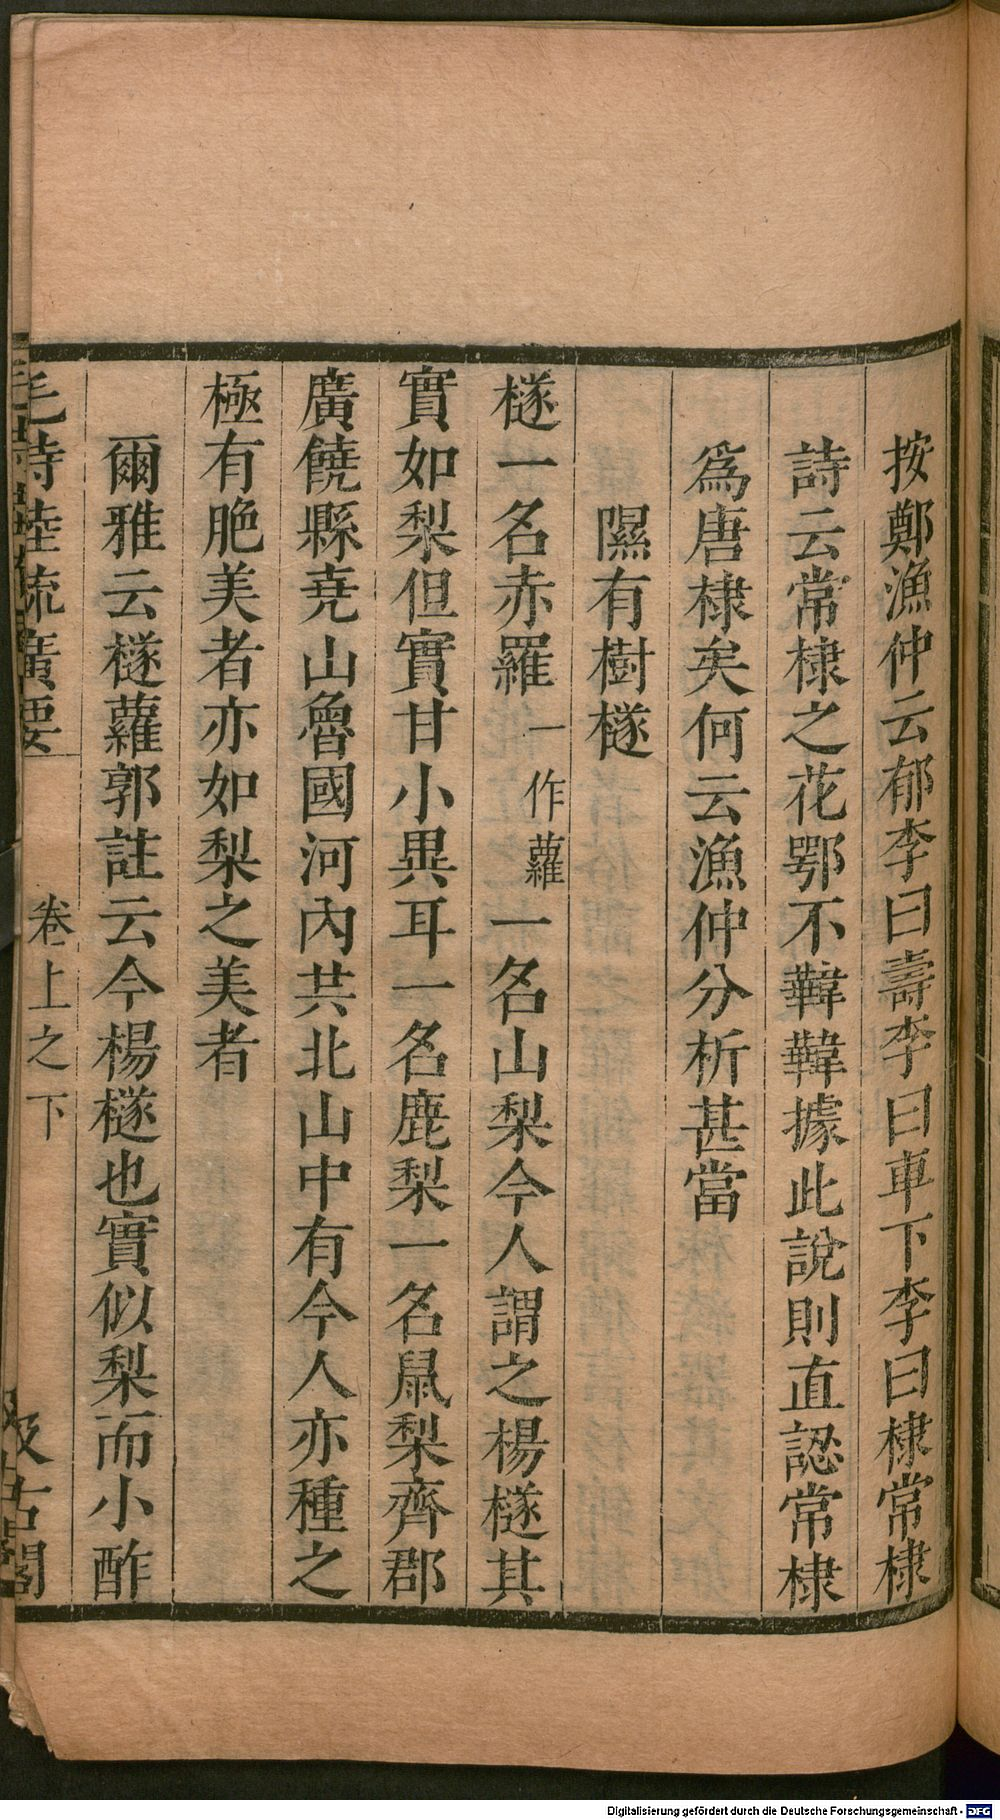 按鄭漁仲云郁李曰壽李曰車下李曰棣常棣
詩云常棣之花鄂不韡韡據此說則直認常棣
爲唐棣矣何云漁仲分析甚當
隰有樹檖
檖一名赤羅一作蘿一名山梨今人謂之楊檖其
實如梨但實甘小異耳一名鹿梨一名鼠梨齊郡
廣饒縣堯山魯國河內共北山中有今人亦種之
極有脃美者亦如梨之美者
爾雅云檖蘿郭註云今楊檖也實似梨而小酢
毛詩陸疏廣要
卷上之下
汲古閣
Digitalisierung gefördert durch die Deutsche Forschungsgemeinschaft - DFG